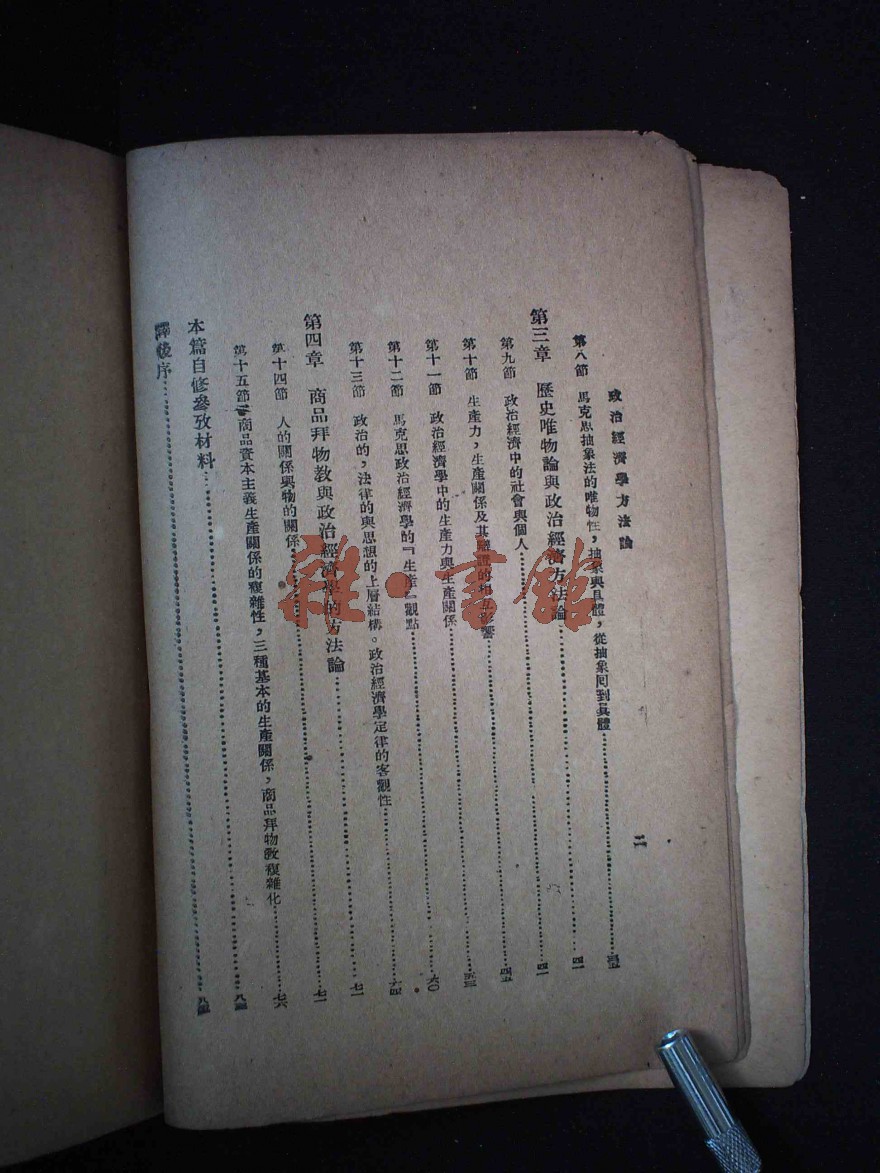 政治經濟學方法論
二
第八節 馬克思抽象法的唯物性，抽象與具體，從抽象囘到具體
第三章 歷史唯物論與政治經濟方法論 四一
第九節 政治經濟中的社會與個人 四一
第十節 生產力，生產關係及其辯證的相互影響 四五
第十一節 政治經濟學中的生產力與生產關係 五三
第十二節 馬克思政治經濟學的『生產』觀點 六〇
第十三節 政治的，法律的與思想的上層結構。政治經濟學定律的客觀性 六四
第四章 商品拜物教與政治經濟學的方法論 七一
第十四節 人的關係與物的關係 七一
第十五節 商品資本主義生產關係的複雜性，三種基本的生產關係，商品拜物教複雜化 七六
本篇自修參攷材料
譯後序
雜·書館